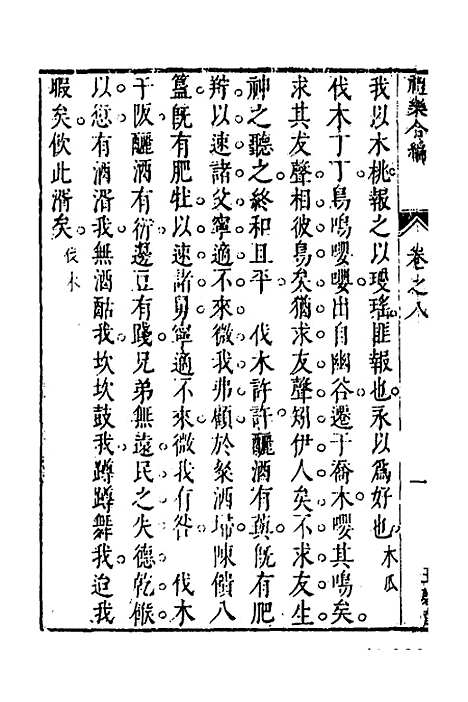 禮樂合編 卷之八 一
我以木桃報之以瓊瑤匪報也永以爲好也木瓜
伐木丁丁鳥鳴嚶嚶出自幽谷遷于喬木嚶其鳴矣
求其友聲相彼鳥矣猶求友聲矧伊人矣不求友生
神之聽之終和且平 伐木許許釃酒有藇旣有肥
羜以速諸父寧適不來微我弗顧於粲洒埽陳饋八
簋旣有肥牡以速諸舅寧適不來微我有咎 伐木
于阪釃酒有衍籩豆有踐兄弟無遠民之失德乾餱
以愆有酒湑我無酒酤我坎坎鼓我蹲蹲舞我迨我
暇矣飲此湑矣伐木